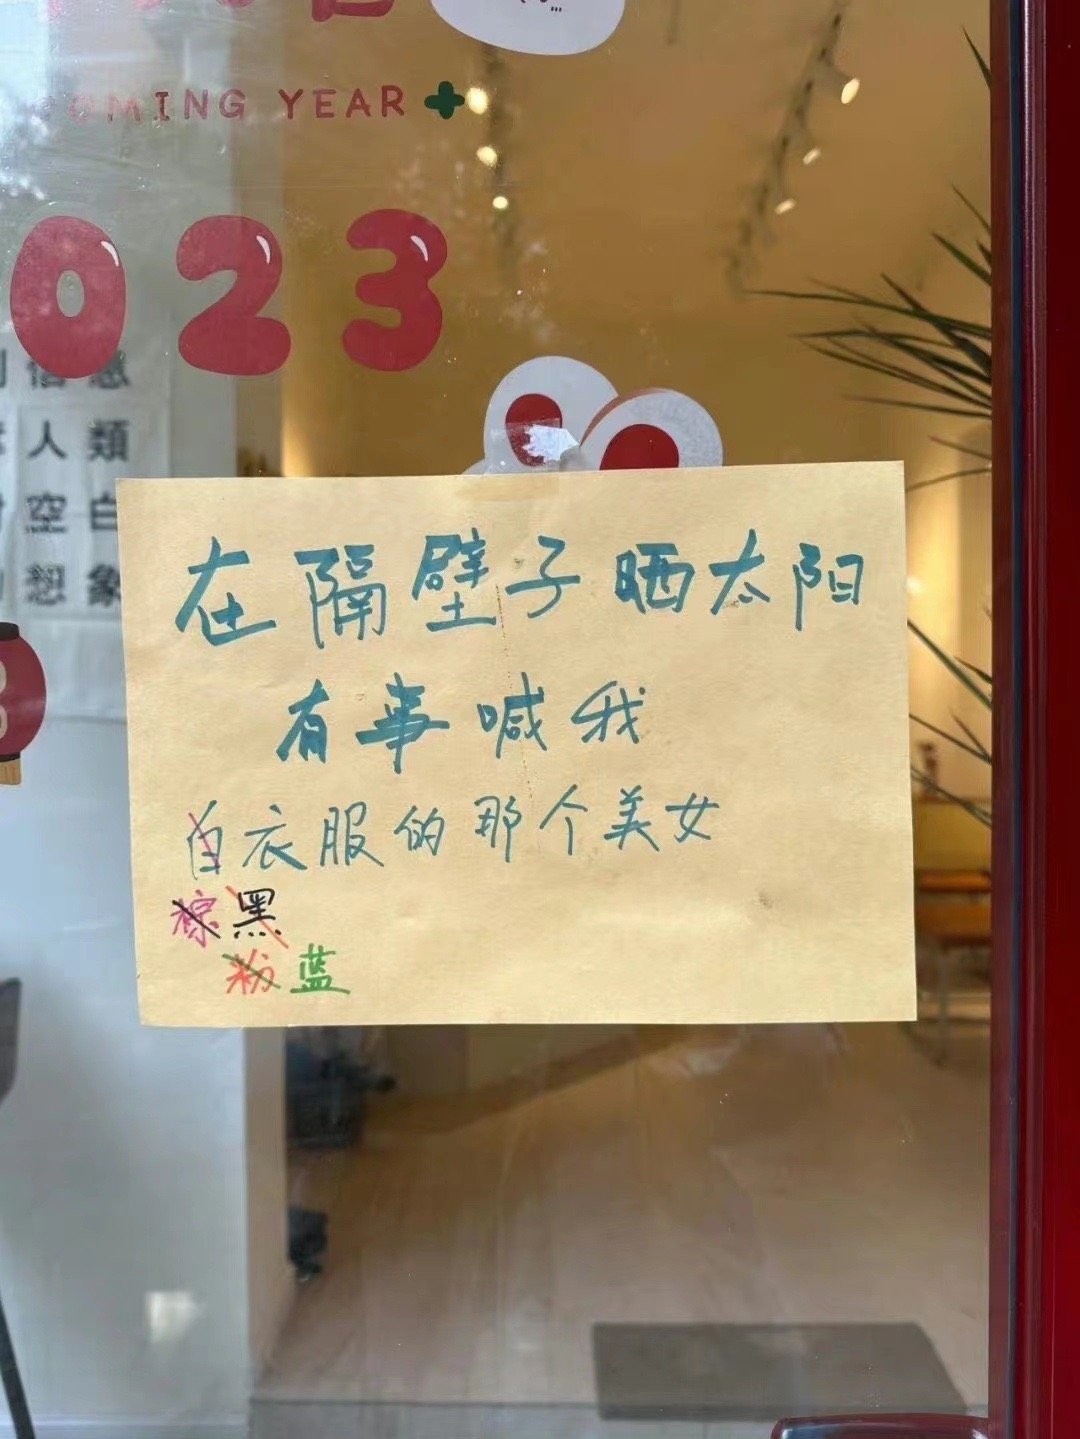 OMING YEAR
023
人類
空白
想象
在隔壁子晒太阳
有事喊我
白衣服的那个美女
棕黑
粉蓝